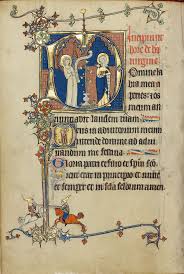 Incipiunt
hore de
uirgine
Domine la
bia mea a
peries: et os
meum an
laudem tuam
Deus in adiutorium meum
intende domine ad adiuuan
dum me festina
Gloria patri et filio et spiri
sicut erat in principio et nunc
et semper et in secula seculorum amen